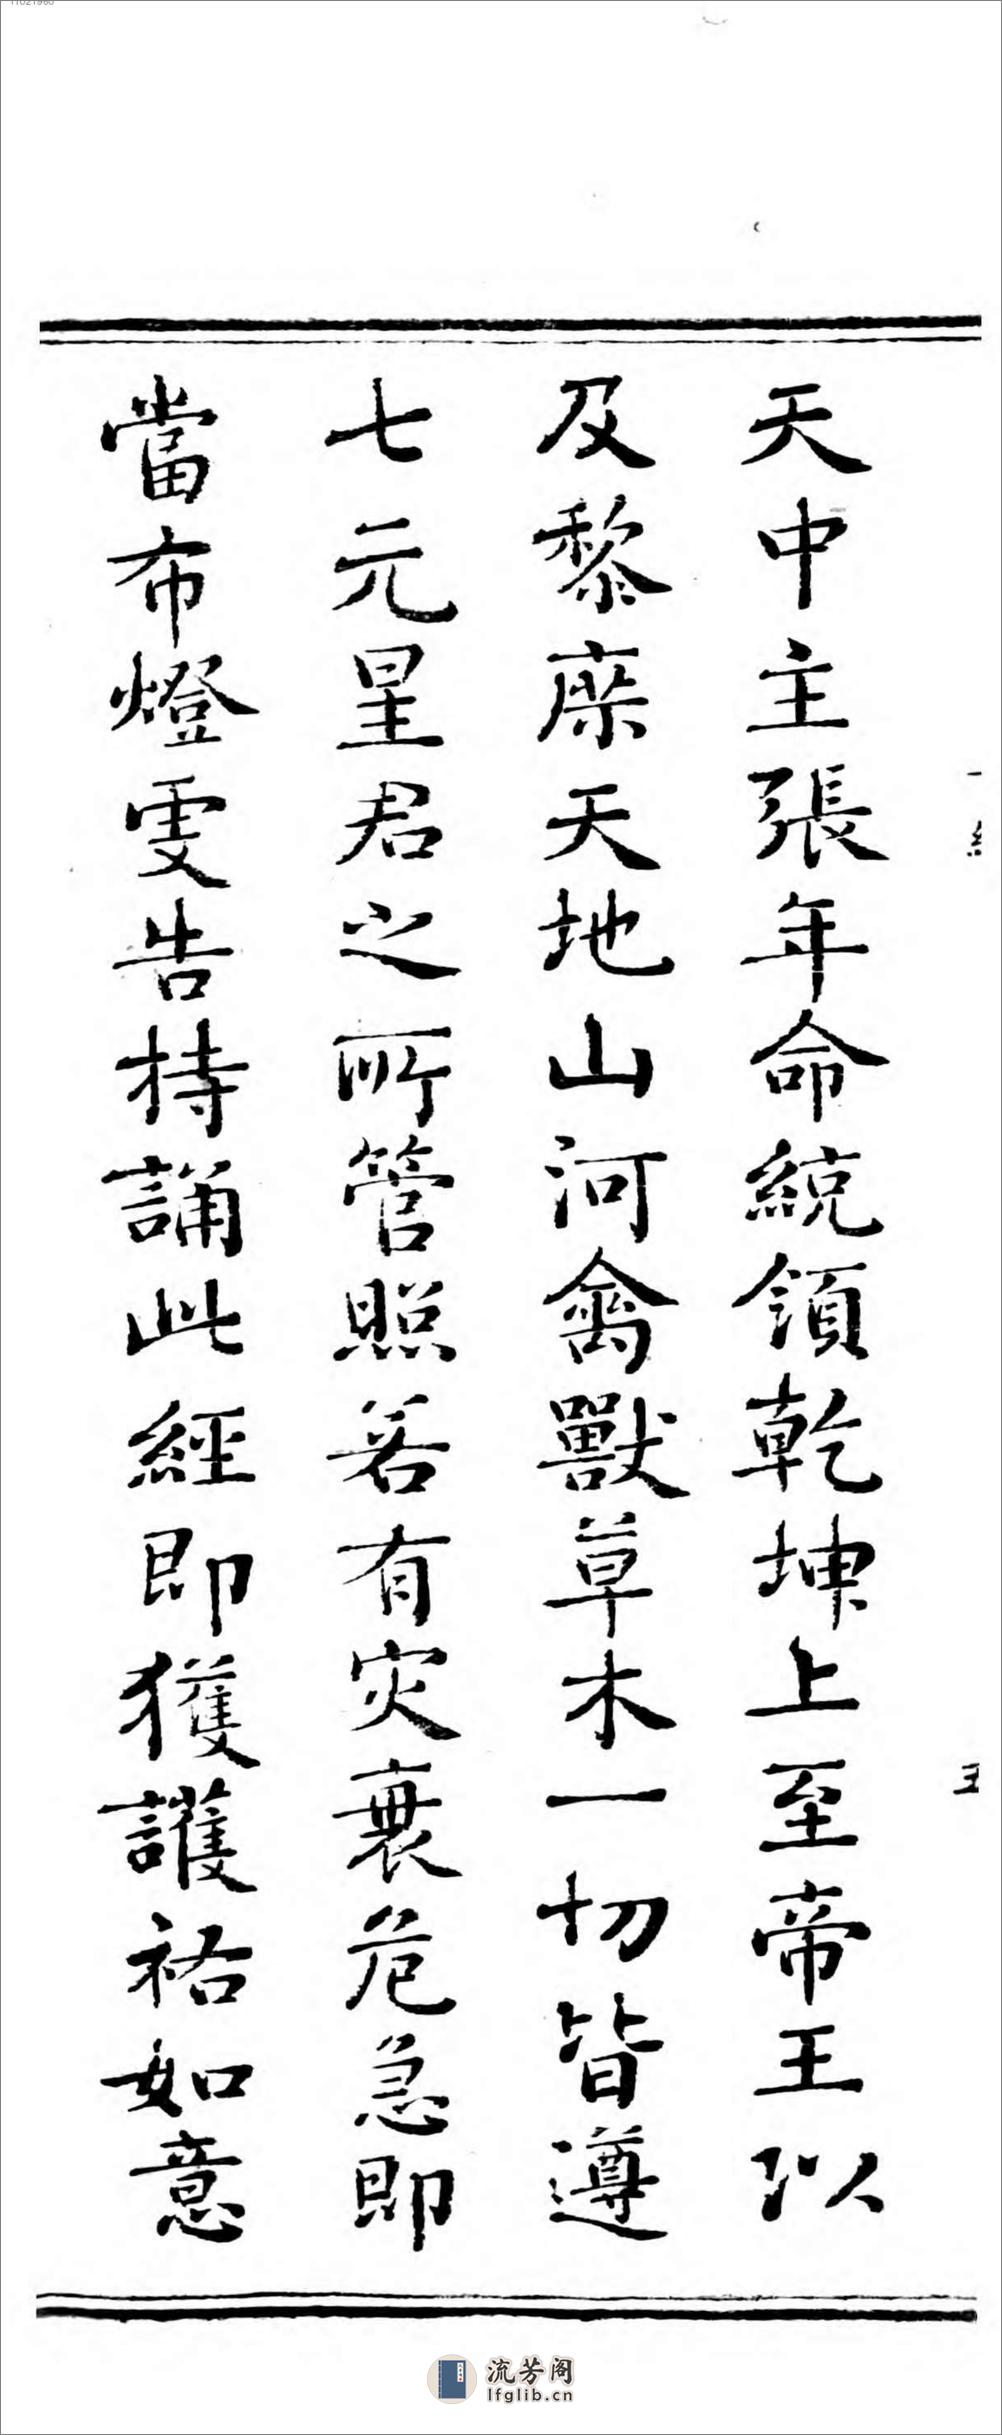 天中主張年命統領乾坤上至帝王以
及黎庶天地山河禽獸草木一切皆遵
七元星君之所管照若有灾衰危急即
當布燈虔告持誦此經即獲護祐如意
王
流芳阁
lfglib.cn
11021980